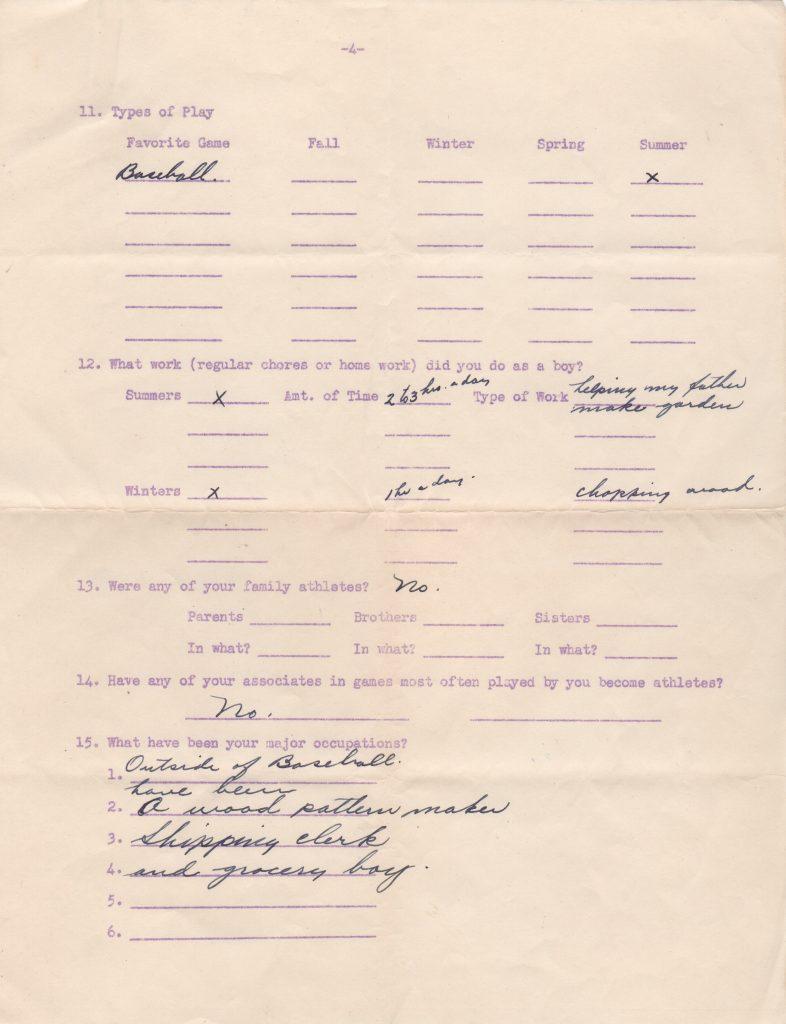 -4-
11. Types of Play
Favorite Game Fall Winter Spring Summer
Baseball. x
12. What work (regular chores or home work) did you do as a boy?
Summers x Amt. of Time 2 to 3 hrs. a day Type of Work helping my father
make garden
Winters x 1 hr a day. chopping wood.
13. Were any of your family athletes? No.
Parents Brothers Sisters
In what? In what? In what?
14. Have any of your associates in games most often played by you become athletes?
No.
15. What have been your major occupations?
1. Outside of Baseball.
have been
2. A wood pattern maker
3. Shipping clerk
4. and grocery boy.
5.
6.